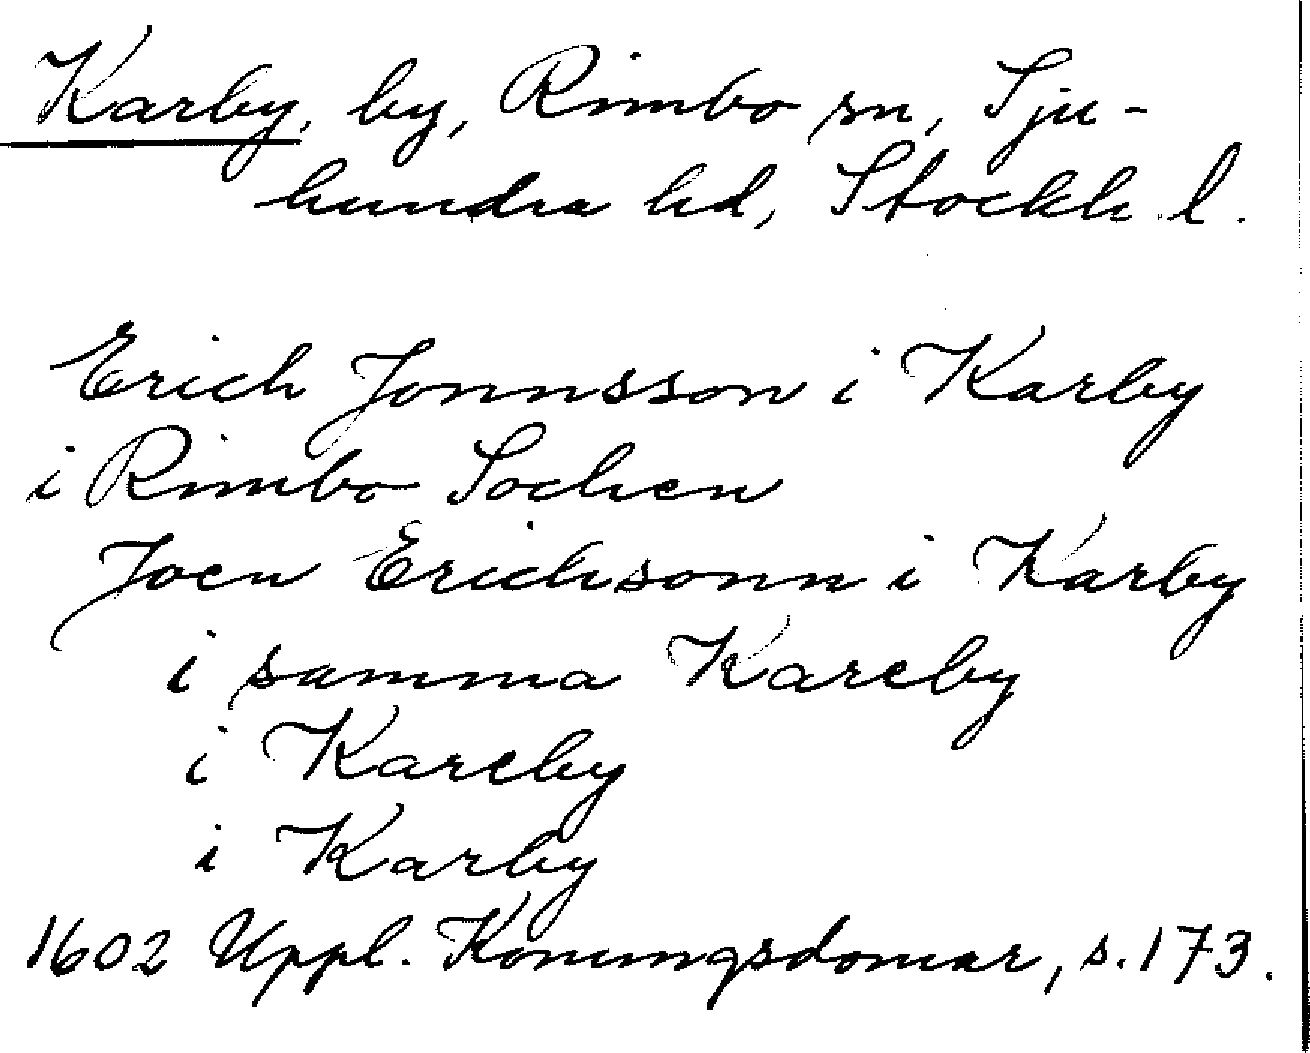 Karby, by, Rimbo sn, Sju-
hundra hd, Stockh. l.
Erich Jonnsson i Karby
i Rimbo Sochen
Joen Erichsonn i Karby
i samma Kareby
i Kareby
i Karby
1602 Uppl. Konungsdomar, s. 173.